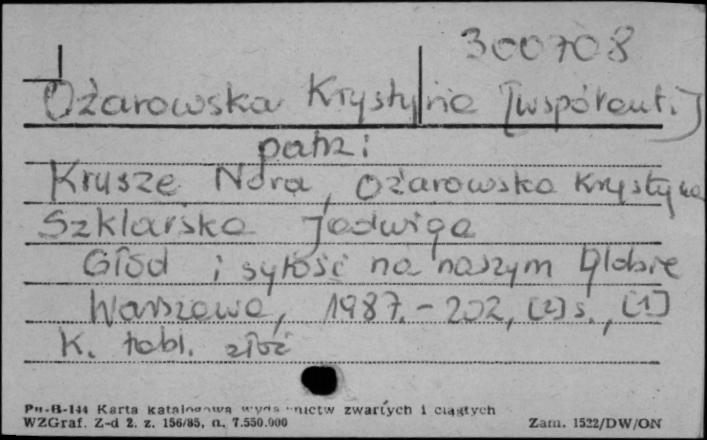 300708
Ożarowska Krystyna [współaut.]
patrz:
Krusze Nora, Ożarowska Krystyna
Szklarska Jadwiga
Głód i sytość na naszym Globie
Warszawa, 1987. - 202, [2] s., [1]
k. tabl. złoż
Pu-B-144 Karta katalogowa wydawnictw zwartych i ciągłych
WZGraf. Z-d 2. z. 156/85, n. 7.550.000 Zam. 1522/DW/ON